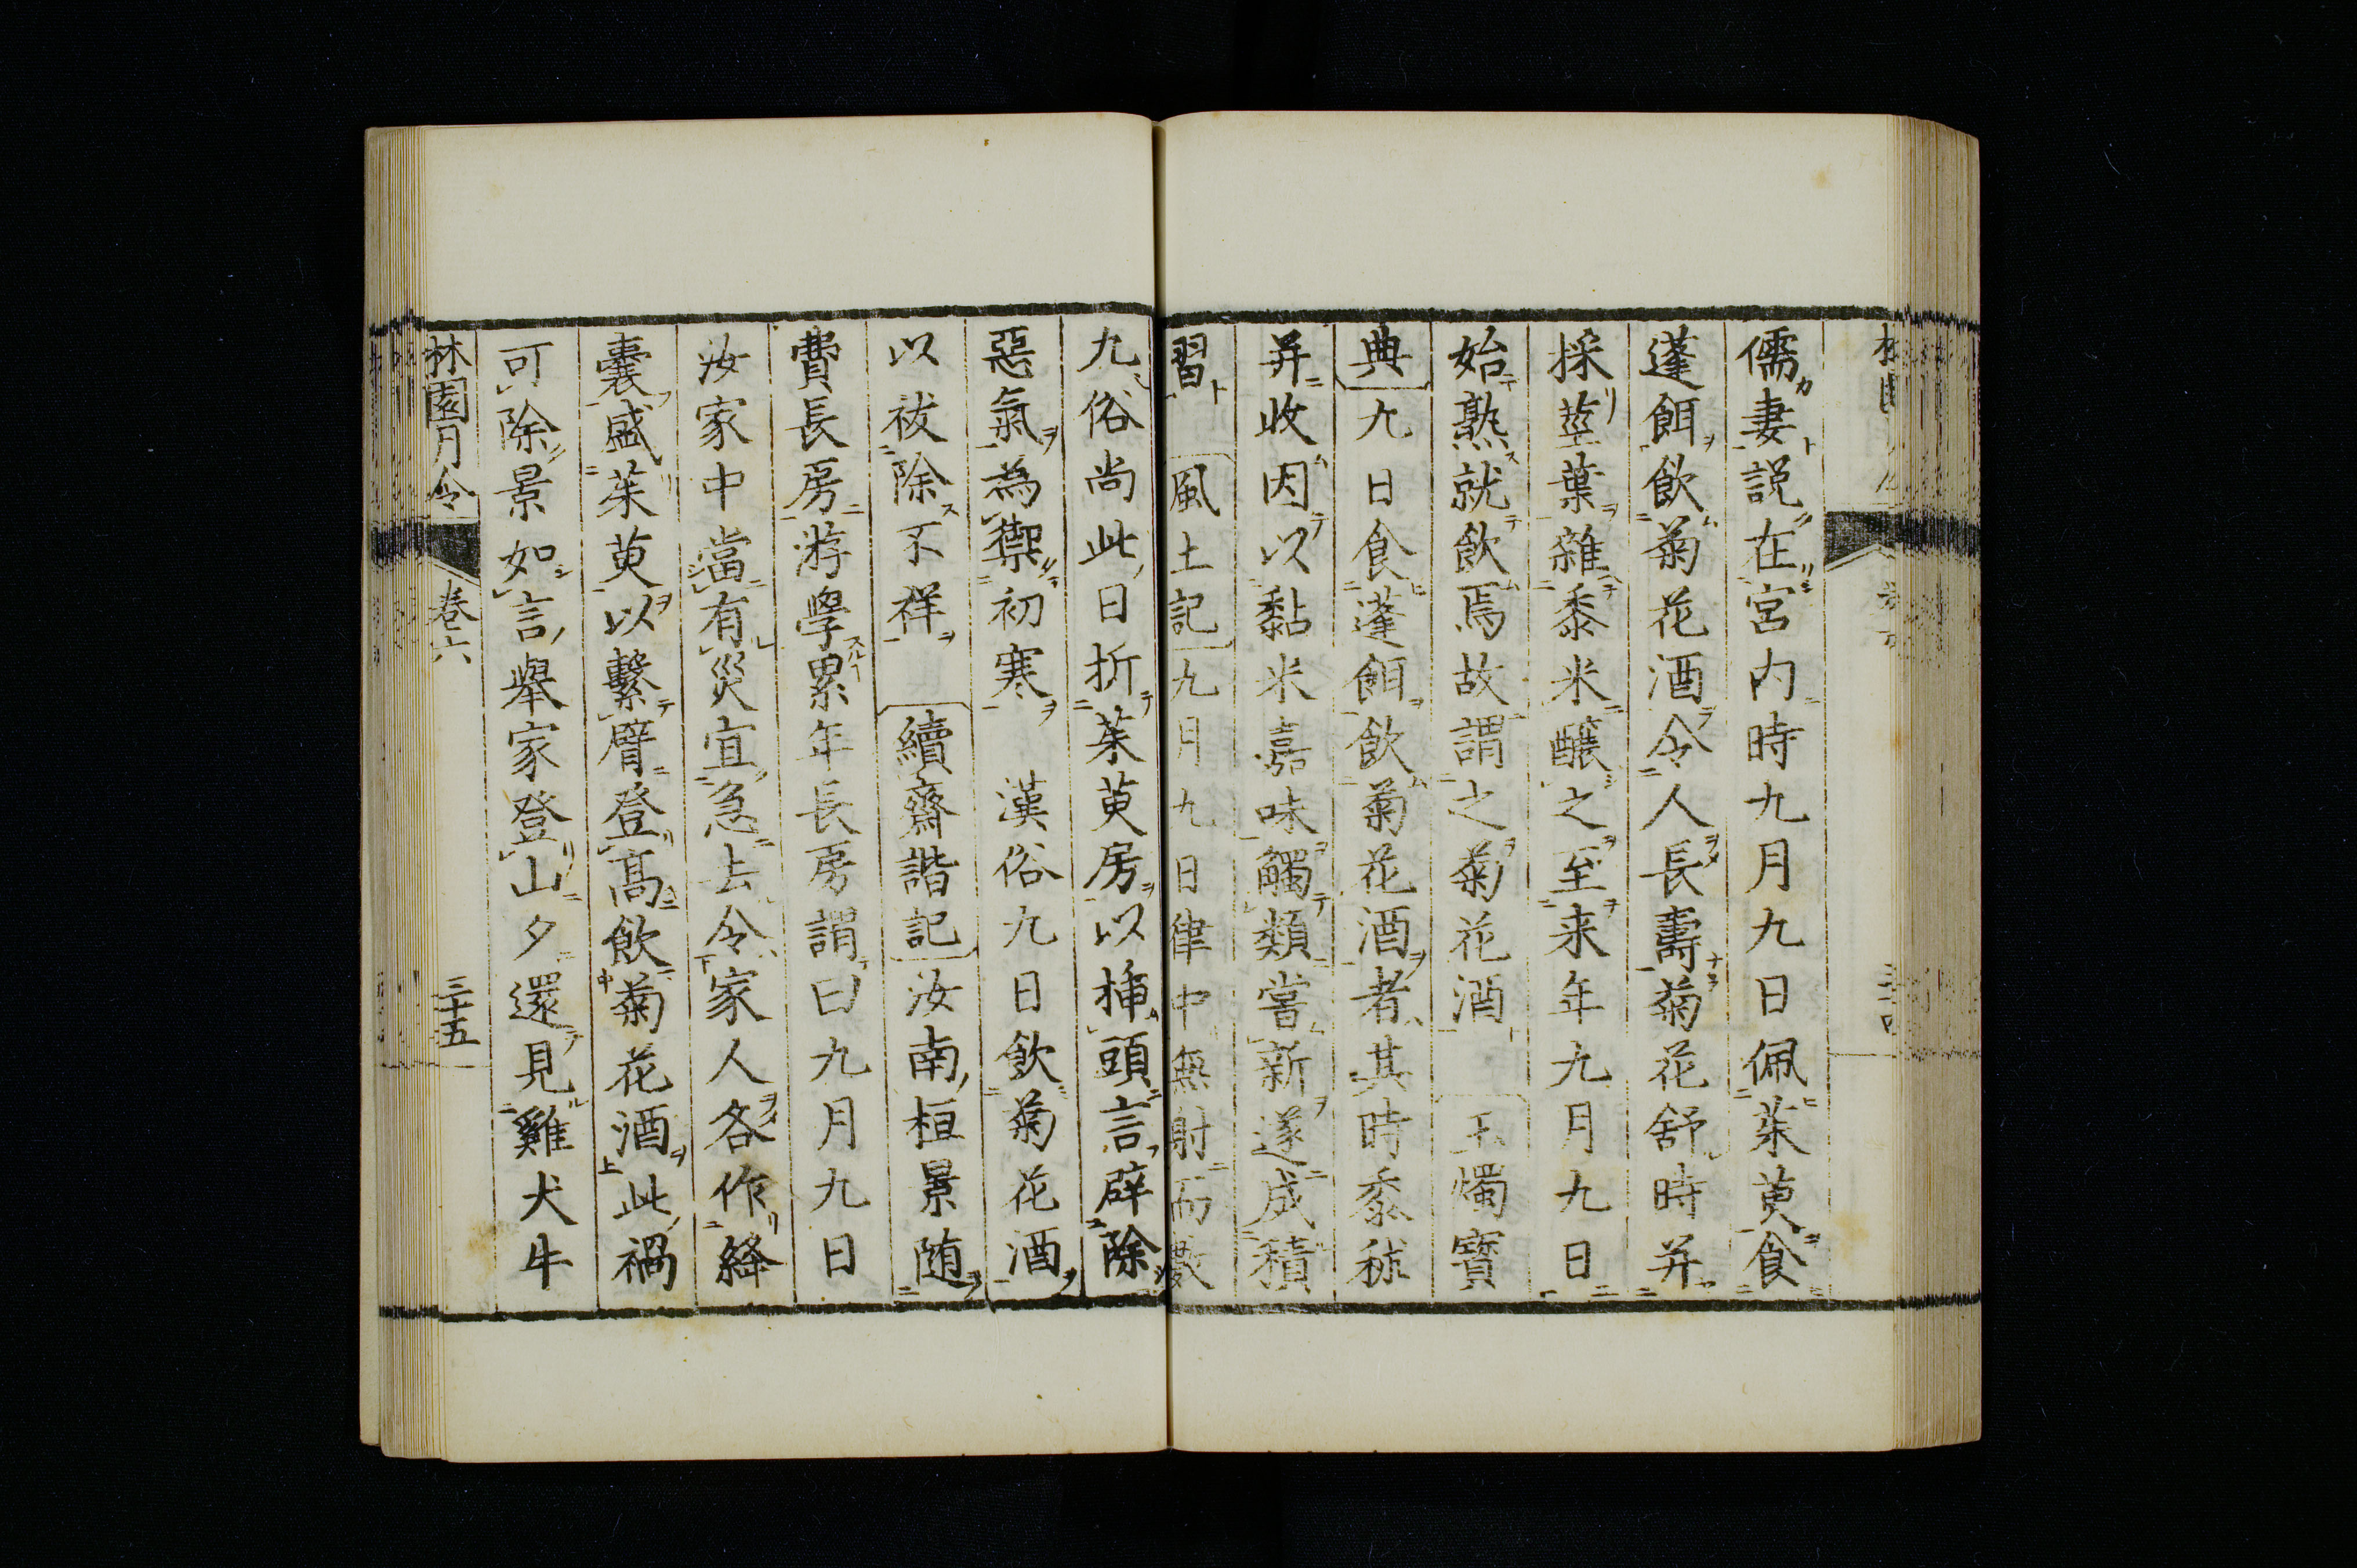 儒妻説在宮内時九月九日佩茱萸食
蓬餌飲菊花酒令人長壽菊花舒時并
採莖葉雜黍米釀之至来年九月九日
始熟就飲焉故謂之菊花酒 玉燭寳
典九日食蓬餌飲菊花酒者其時黍秫
并收因以黏米嘉味觸類嘗新遂成積
習 風土記九月九日律中無射而數
九俗尚此日折茱萸房以挿頭言辟除
惡氣為禦初寒 漢俗九日飲菊花酒
以祓除不祥 續齊諧記汝南桓景随
費長房游學累年長房謂曰九月九日
汝家中當有災宜急去令家人各作絳
囊盛茱萸以繫臂登高飲菊花酒此禍
可除景如言舉家登山夕還見雞犬牛
林園月令 卷六 三十五